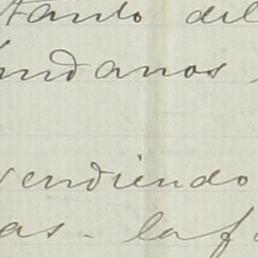 tanto del
ndanos
vendiendo
as - la f